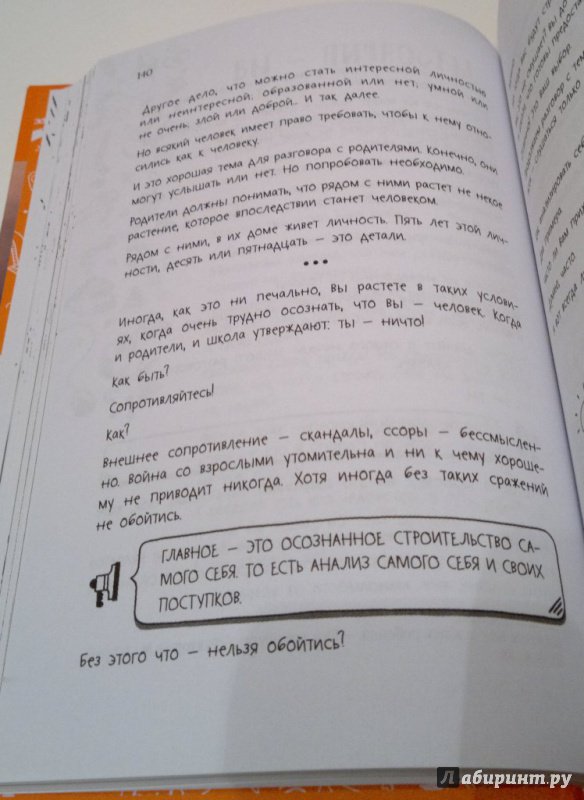 140
Другое дело, что можно стать интересной личностью
или неинтересной; образованной или нет; умной или
не очень; злой или доброй... И так далее.
Но всякий человек имеет право требовать, чтобы к нему отно-
сились как к человеку.
И это хорошая тема для разговора с родителями. Конечно, они
могут услышать или нет. Но попробовать необходимо.
Родители должны понимать, что рядом с ними растет не некое
растение, которое впоследствии станет человеком.
Рядом с ними, в их доме живет личность. Пять лет этой лич-
ности, десять или пятнадцать — это детали.
•••
Иногда, как это ни печально, вы растете в таких услови-
ях, когда очень трудно осознать, что вы — человек. Когда
и родители, и школа утверждают: ты — ничто!
Как быть?
Сопротивляйтесь!
Как?
Внешнее сопротивление — скандалы, ссоры — бессмыслен-
но. Война со взрослыми утомительна и ни к чему хороше-
му не приводит никогда. Хотя иногда без таких сражений
не обойтись.
ГЛАВНОЕ — ЭТО ОСОЗНАННОЕ СТРОИТЕЛЬСТВО СА-
МОГО СЕБЯ. ТО ЕСТЬ АНАЛИЗ САМОГО СЕБЯ И СВОИХ
ПОСТУПКОВ.
Без этого что — нельзя обойтись?
Лабиринт.ру